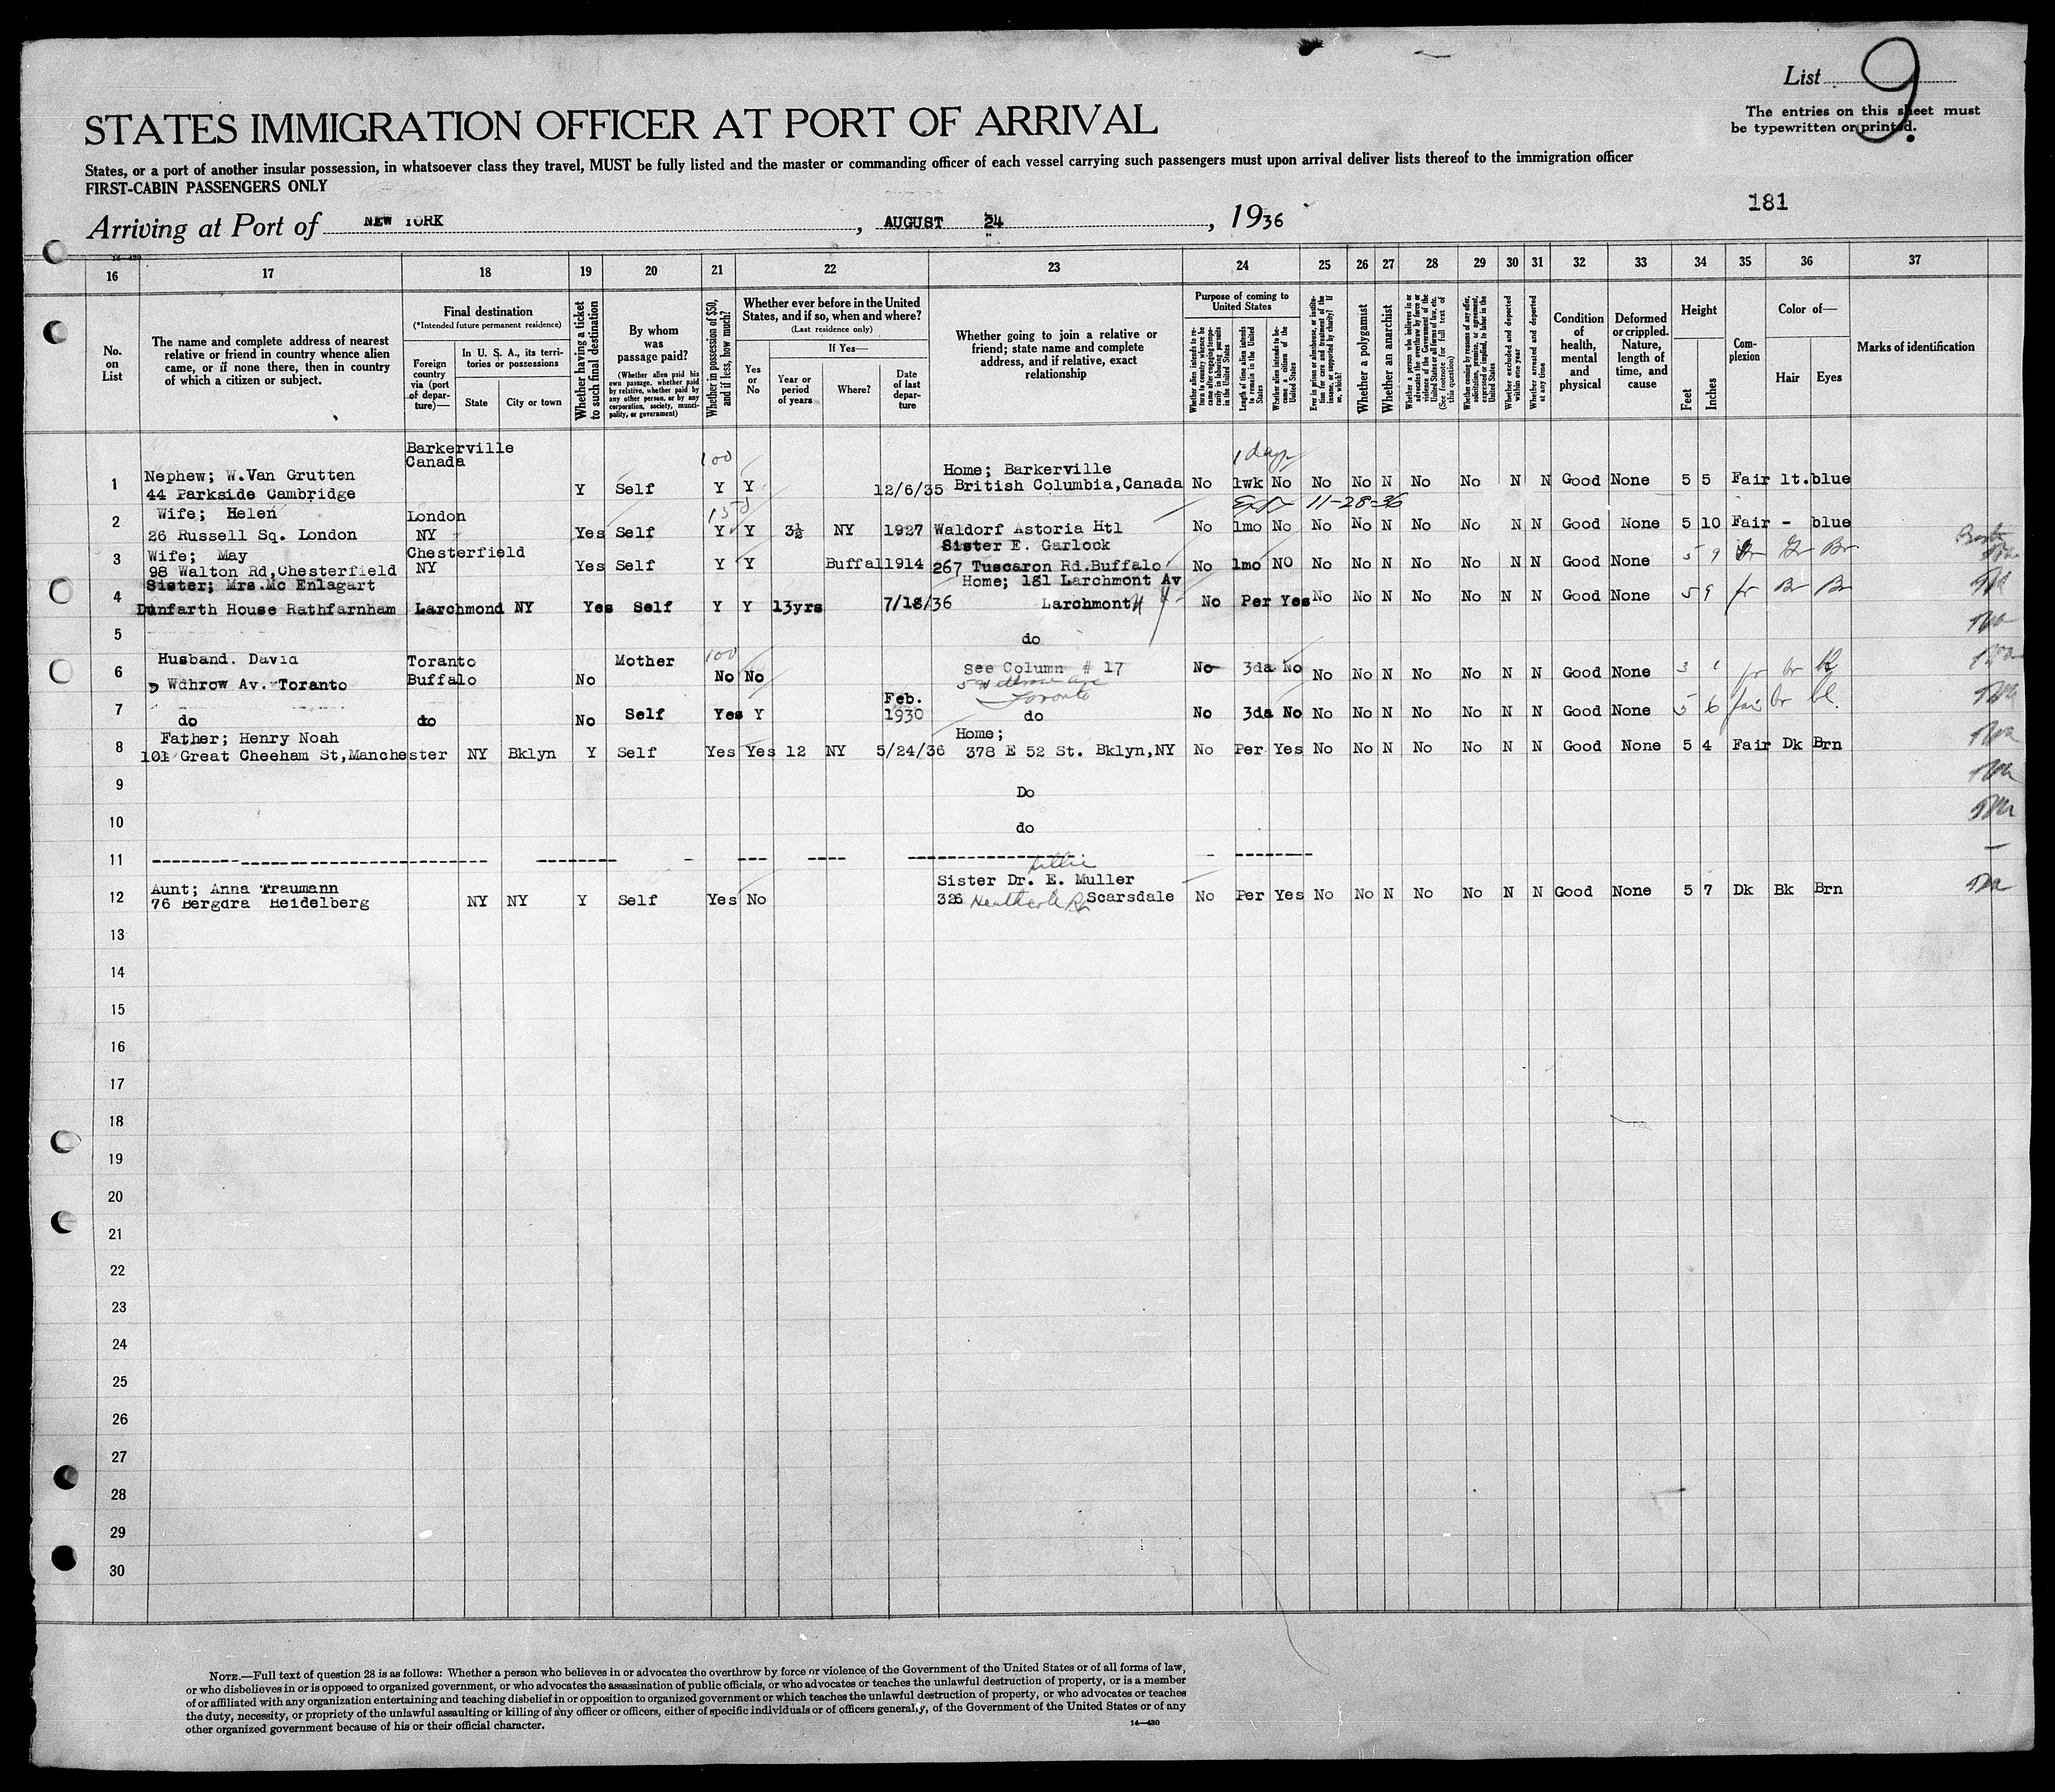 List 9
The entries on this sheet must
be typewritten or printed.
STATES IMMIGRATION OFFICER AT PORT OF ARRIVAL
States, or a port of another insular possession, in whatsoever class they travel, MUST be fully listed and the master or commanding officer of each vessel carrying such passengers must upon arrival deliver lists thereof to the immigration officer
FIRST-CABIN PASSENGERS ONLY
181
Arriving at Port of NEW YORK, AUGUST 24, 1936
16 17 18 19 20 21 22 23 24 25 26 27 28 29 30 31 32 33 34 35 36 37
No. on List
The name and complete address of nearest
relative or friend in country whence alien
came, or if none there, then in country
of which a citizen or subject.
Final destination
(*Intended future permanent residence)
Foreign country via (port of departure)—
In U. S. A., its territories or possessions
State
City or town
Whether having a ticket to such final destination
By whom was passage paid?
(Whether alien paid his own passage, whether paid by relative, whether paid by any other person, or by any corporation, society, municipality, or government)
Whether in possession of $50, and if less, how much?
Whether ever before in the United States, and if so, when and where?
(Last residence only)
If Yes—
Yes or No
Year or period of years
Where?
Date of last departure
Whether going to join a relative or
friend; state name and complete
address, and if relative, exact
relationship
Purpose of coming to United States
Whether alien intends to return to country whence he came after engaging temporarily in laboring pursuits in the United States
Length of time alien intends to remain in the United States
Whether alien intends to become a citizen of the United States
Ever in prison or almshouse, or institution for care and treatment of the insane, or supported by charity? If so, which?
Whether a polygamist
Whether an anarchist
Whether a person who believes in or advocates the overthrow by force or violence of the Government of the United States or all forms of law, etc. (See footnote for full text of this question)
Whether coming by reasons of any offer, solicitation, promise, or agreement, expressed or implied, to labor in the United States
Whether excluded and deported within one year
Whether arrested and deported at any time
Condition of health, mental and physical
Deformed or crippled. Nature, length of time, and cause
Height
Feet
Inches
Complexion
Color of—
Hair
Eyes
Marks of identification
Barkerville
Canada 100 1 day
Nephew; W.Van Grutten Home; Barkerville
1 44 Parkside Cambridge Y Self Y Y 12/6/35 British Columbia,Canada No 1wk No No No N No No N N Good None 5 5 Fair lt. blue
Wife; Helen London 150 11-28-36
2 26 Russell Sq. London NY Yes Self Y Y 3½ NY 1927 Waldorf Astoria Htl No 1mo No No No N No No N N Good None 5 10 Fair - blue
Wife; May Chesterfield Sister E. Garlock
3 98 Walton Rd,Chesterfield NY Yes Self Y Y Buffal 1914 267 Tuscaron Rd.Buffalo No 1mo NO No No N No No N N Good None 5 9 Br
Sister; Mrs.Mc Enlagart Home; 181 Larchmont Av
4 Danfarth House Rathfarnham Larchmond NY Yes Self Y Y 13yrs 7/18/36 Larchmont No Per Yes No No N No No N N Good None 5 9 fr Br Br
5 do
Husband. David Toranto Mother 100 See Column # 17
6 Wdhrow Av. Toranto Buffalo No No No No 3da No No No N No No N N Good None fr br
Toronto
7 do do No Self Yes Y Feb. 1930 do No 3da No No No N No No N N Good None 5 6 fair br bl.
Father; Henry Noah Home;
8 101 Great Cheeham St,Manchester NY Bklyn Y Self Yes Yes 12 NY 5/24/36 378 E 52 St. Bklyn,NY No Per Yes No No N No No N N Good None 5 4 Fair Dk Brn
9 Do
10 do
11
Aunt; Anna Traumann Sister Dr. E. Muller
12 76 Bergdra Heidelberg NY NY Y Self Yes No 326 Scarsdale No Per Yes No No N No No N N Good None 5 7 Dk Bk Brn
13
14
15
16
17
18
19
20
21
22
23
24
25
26
27
28
29
30
NOTE.—Full text of question 28 is as follows: Whether a person who believes in or advocates the overthrow by force or violence of the Government of the United States or of all forms of law,
or who disbelieves in or is opposed to organized government, or who advocates the assassination of public officials, or who advocates or teaches the unlawful destruction of property, or is a member
of or affiliated with any organization entertaining and teaching disbelief in or opposition to organized government or which teaches the unlawful destruction of property, or who advocates or teaches
the duty, necessity, or propriety of the unlawful assaulting or killing of any officer or officers, either of specific individuals or of officers generally, of the Government of the United States or of any
other organized government because of his or their official character.
14—430